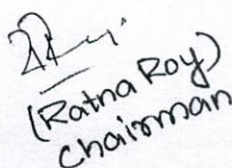 (Ratna Roy)
Chairman